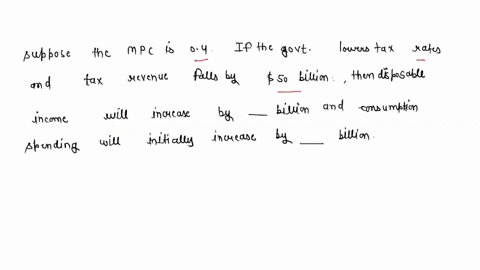 suppose the MPC is 0.4. If the govt. lowers tax rates
and tax revenue falls by $50 billion, then disposable
income will increase by __ billion and consumption
spending will initially increase by __ billion.